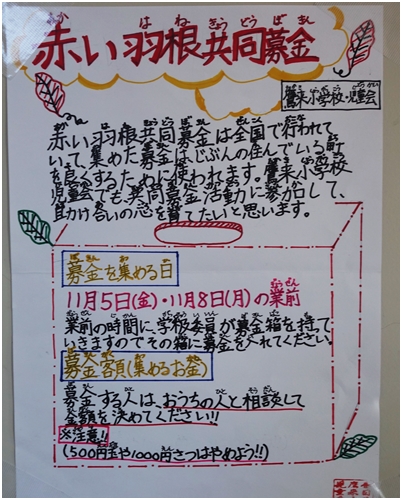 赤い羽根共同募金
鷹来小学校・児童会
赤い羽根共同募金は全国で行われて
いて、集めた募金はじぶんの住んでいる町
を良くするために使われます。鷹来小学校
児童会でも、共同募金活動に参加して、
助け合いの心を育てたいと思います。
募金を集める日
11月5日(金)・11月8日(月)の業前
業前の時間に、学級委員が募金箱を持て
いきますのでその箱に募金を入れてください。
募金各頁(集めるお金)
募金する人は、おうちの人と相談して
金額を決めてください!!
※注意!
(500円玉や1000円さつはやめよう!!)